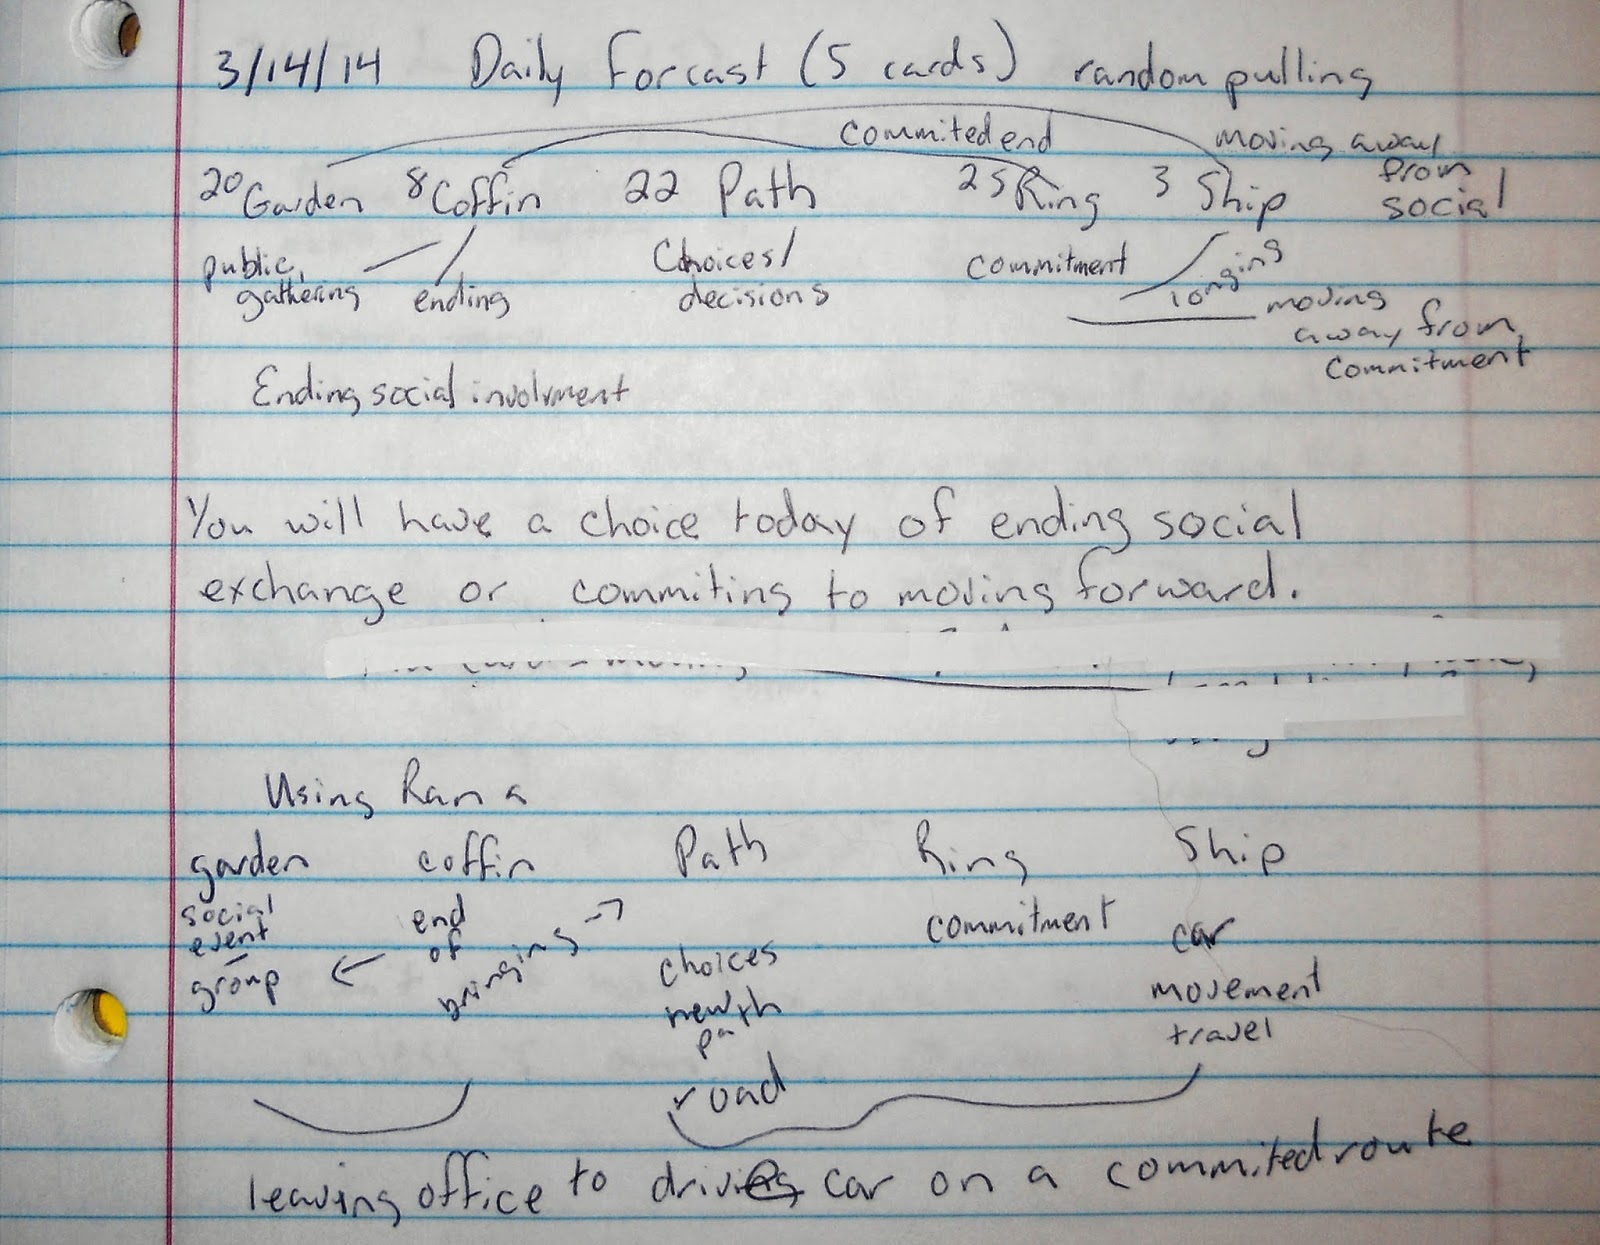 3/14/14 Daily Forcast (5 cards) random pulling
commited end moving away
from
social
20 Garden 8 Coffin 22 Path 25 Ring 3 Ship
public, gathering
ending
Choices/
decisions
commitment
longing
moving
away from
commitment
Ending social involvment
You will have a choice today of ending social
exchange or commiting to moving forward.
Using Rana
garden coffin Path Ring Ship
social
event
group
end
of
bringing
choices
new
path
road
commitment
car
movement
travel
leaving office to drive car on a commited route